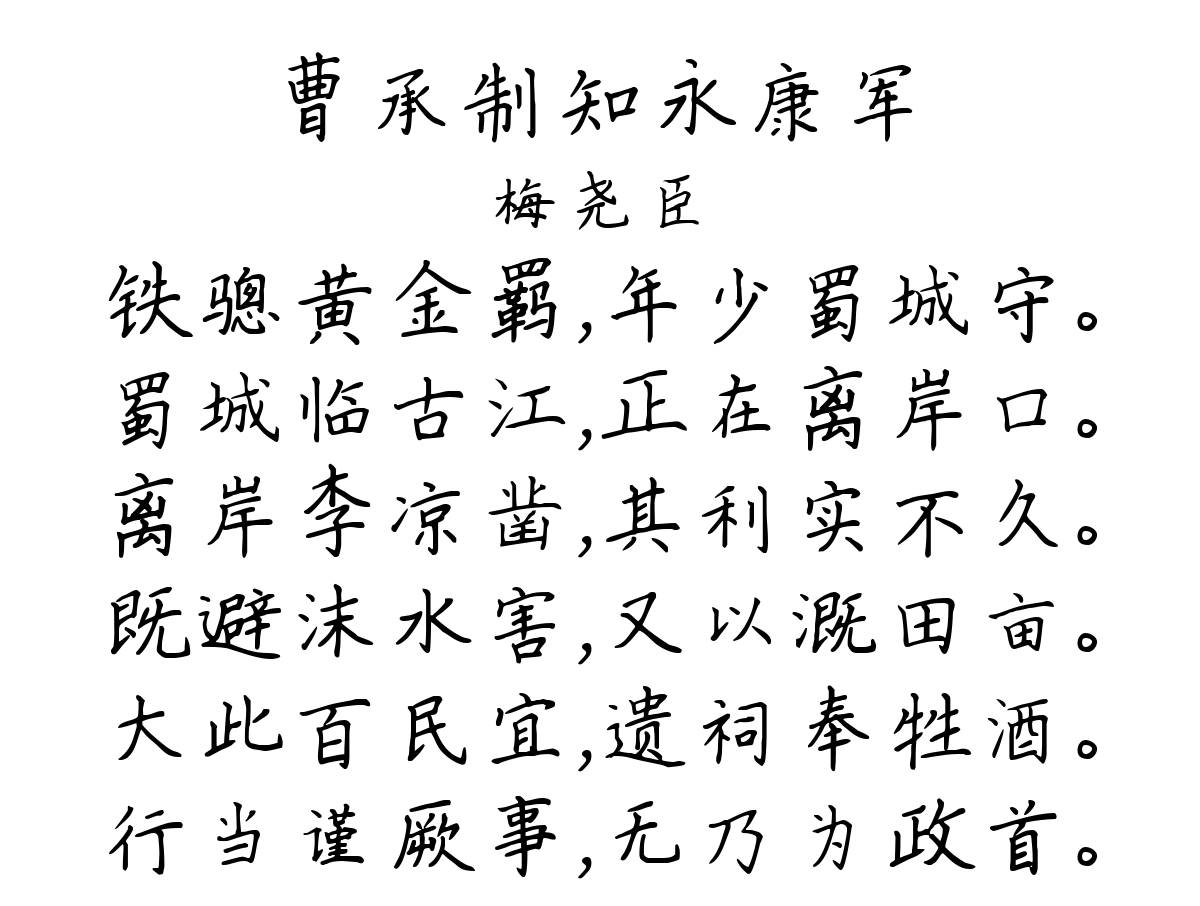 曹承制知永康军
梅尧臣
铁骢黄金羁,年少蜀城守。
蜀城临古江,正在离岸口。
离岸李凉凿,其利实不久。
既避沫水害,又以溉田亩。
大此百民宜,遗祠奉牲酒。
行当谨厥事,无乃为政首。